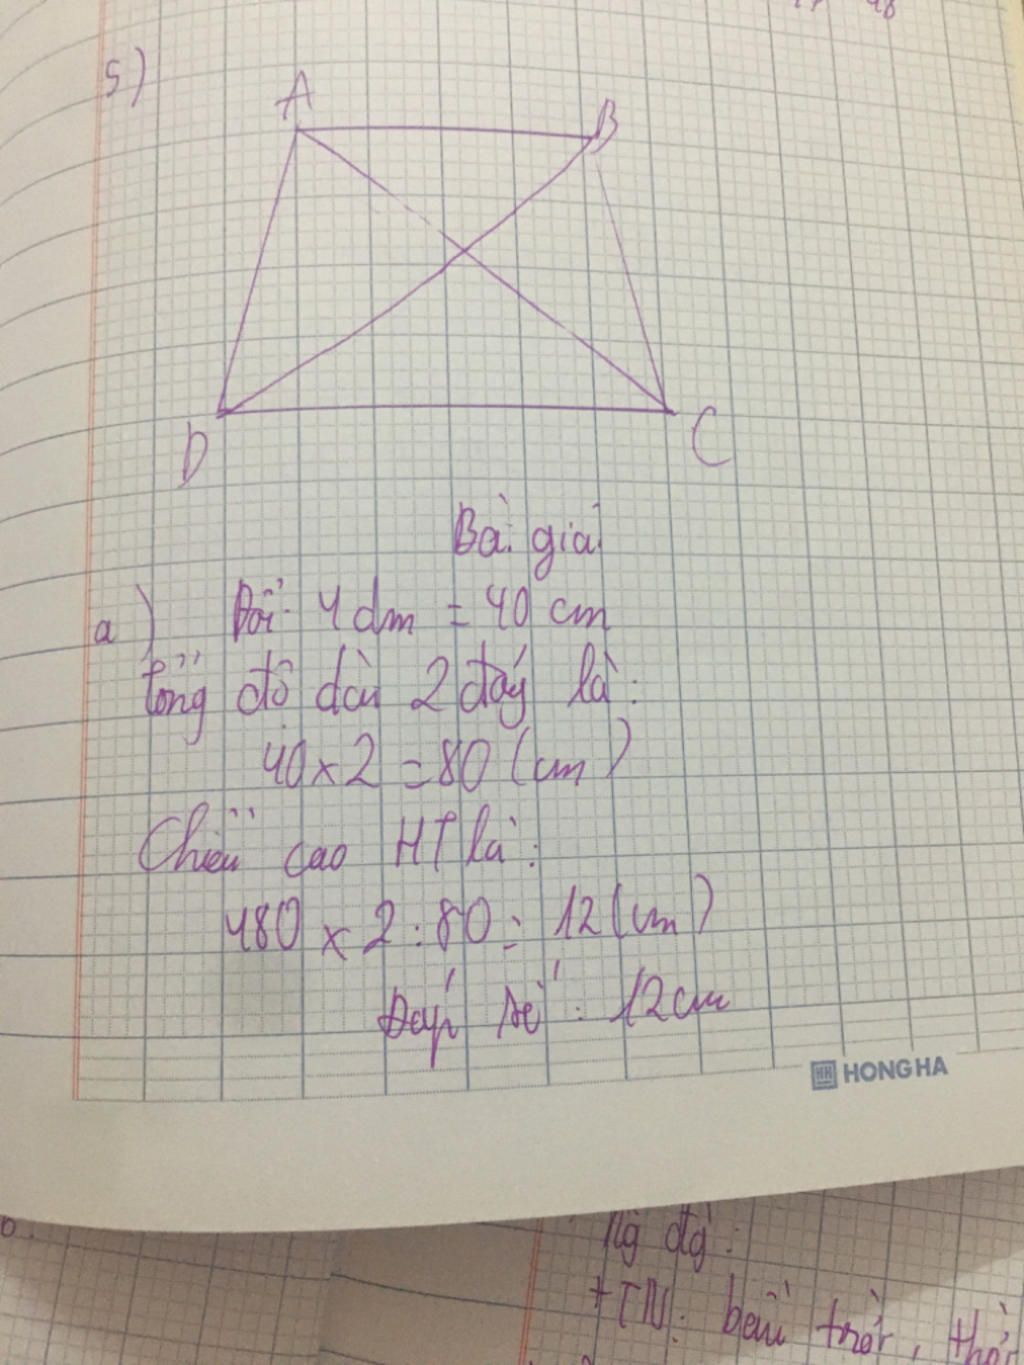 48
5)
A
B
D
C
Bài giải
a) Đổi 4 dm = 40 cm
tổng độ dài 2 đáy là:
40 x 2 = 80 (cm)
Chiều cao HT là:
480 x 2 : 80 = 12 (cm)
Đáp số: 12 cm
HH HONG HA
+ TN: bầu trời,